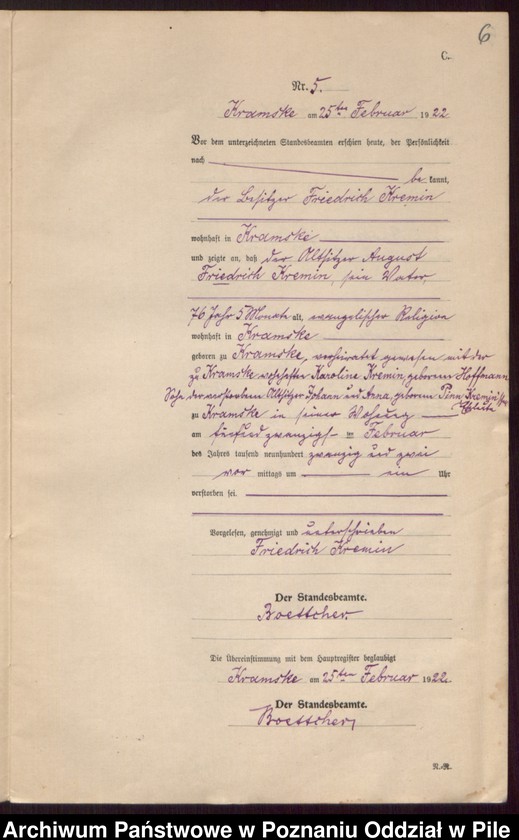 6
C.
Nr. 5.
Kramske am 25ten Februar 1922
Vor dem unterzeichneten Standesbeamten erschien heute, der Persönlichkeit
nach
be kannt,
der Besitzer Friedrich Kremin
wohnhaft in Kramske
und zeigte an, daß der Altsitzer August
Friedrich Kremin, sein Vater,
76 Jahr 5 Monate alt, evangelischer Religion
wohnhaft in Kramske
geboren zu Kramske, verheiratet gewesen mit der
zu Kramske wohnhaften Karoline Kremin, geborene Hoffmann
Sohn der verstorbenen Altsitzer Johann und Anna, geborene Kremin'schen
Eheleute
zu Kramske in seiner Wohnung
am fünfundzwanzigsten Februar
des Jahres tausend neunhundert zwanzig und zwei
vor mittags um ein Uhr
verstorben sei.
Vorgelesen, genehmigt und unterschrieben
Friedrich Kremin
Der Standesbeamte.
Boettcher.
Die Übereinstimmung mit dem Hauptregister beglaubigt
Kramske am 25ten Februar 1922.
Der Standesbeamte.
Boettcher
N.-R.
Archiwum Państwowe w Poznaniu Oddział w Pile